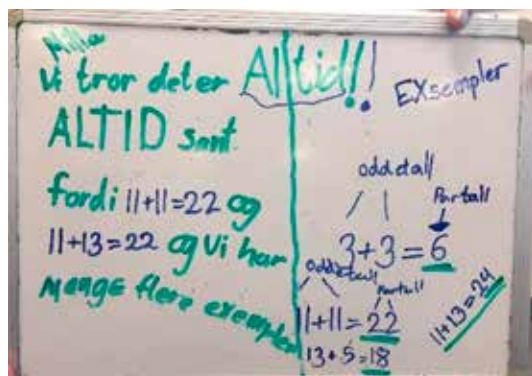 Milla
Vi tror deter
ALTID sant
fordi 11+11=22 og
11+13=22 og Vi har
mange flere exempler
Alltid!!
EXsempler
oddetall
Partall
3+3=6
oddetall
Partall
11+11=22
13+5=18
11+13=24